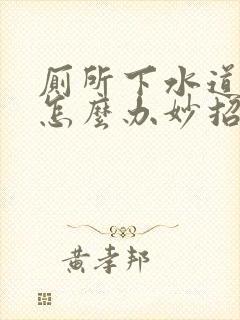 厕所下水道
怎麼办妙招
黄孝邦